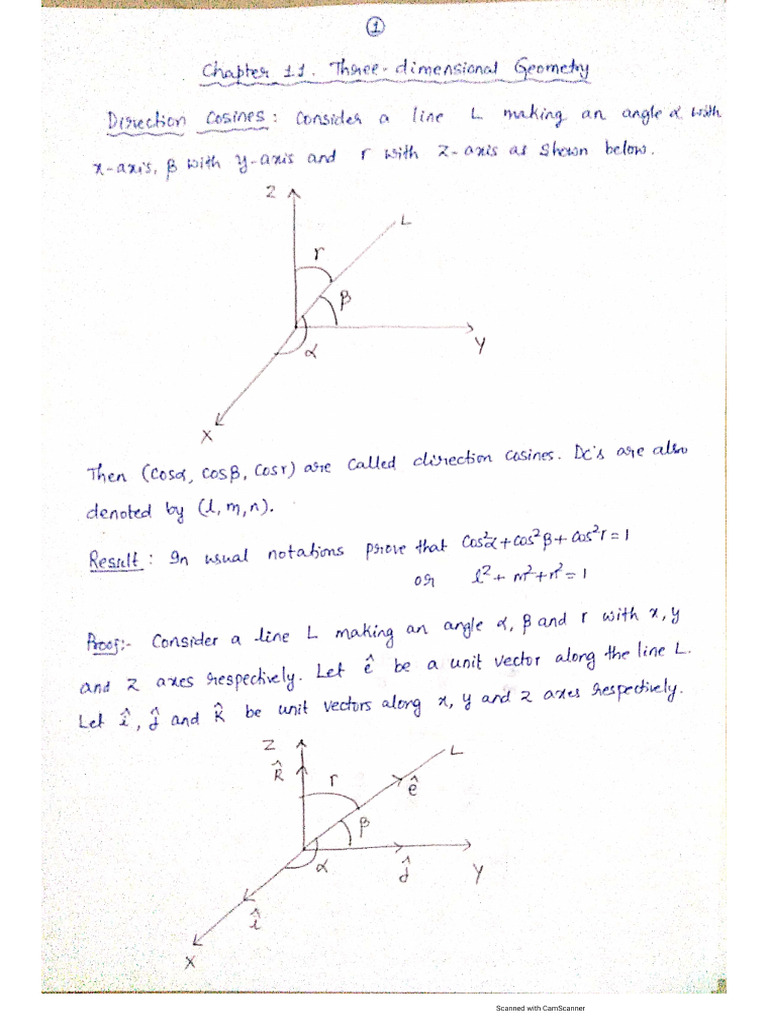 1
Chapter 11. Three-dimensional Geometry
Direction Cosines: Consider a line L making an angle α with
x-axis, β with y-axis and r with z-axis as shown below.
Z
L
r
β
α
Y
X
Then (cosα, cosβ, cosr) are called direction cosines. Dc's are also
denoted by (l, m, n).
Result: In usual notations prove that cos²α + cos²β + cos²r = 1
or l² + m² + n² = 1
Proof:- Consider a line L making an angle α, β and r with x, y
and z axes respectively. Let ê be a unit vector along the line L.
Let î, ĵ and k̂ be unit vectors along x, y and z axes respectively.
Z
L
k̂
r
ê
β
α
ĵ
Y
î
X
Scanned with CamScanner